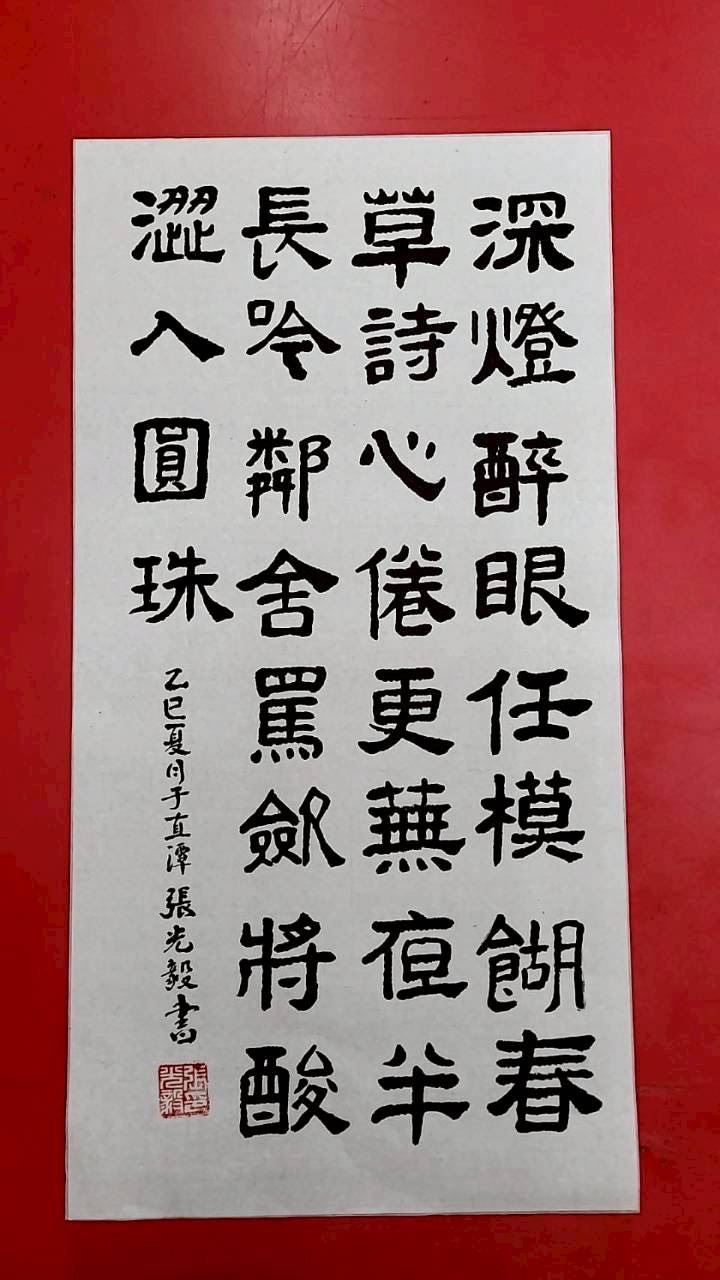 深燈醉眼任模餬春
草詩心倦更蕪夜半
長吟鄰舍罵斂將酸
澀入圓珠
乙巳夏月于直潭張光毅書
張光毅印